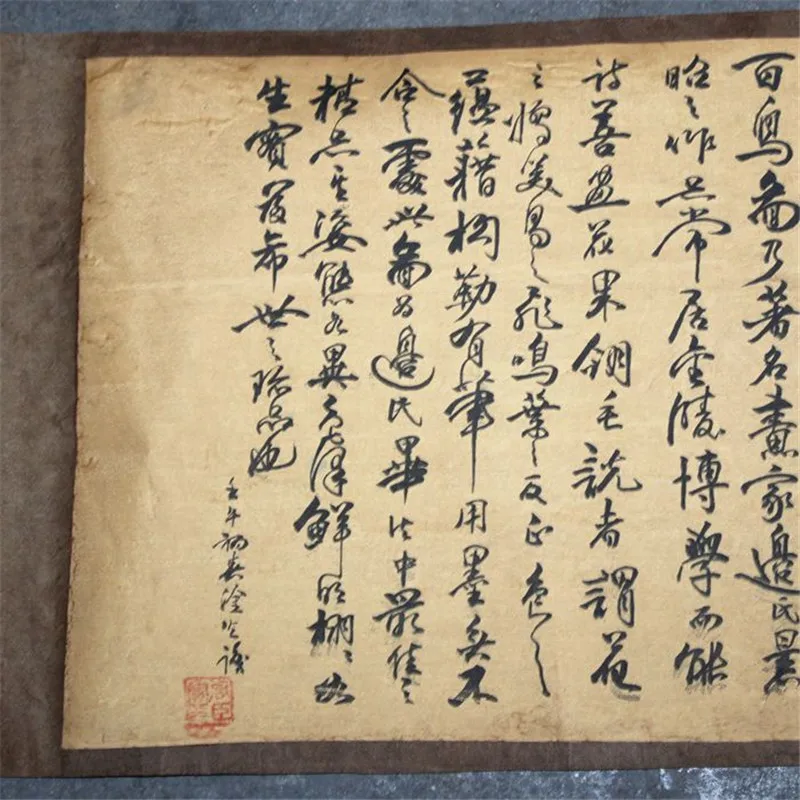 百鳥圖乃著名畫家邊氏景
昭之作品常居金陵博學而能
詩善畫花果翎毛說者謂花
之嬌美鳥之飛鳴葉之反正色之
蘊藉枸勒有筆用墨無不
合之處此圖為邊氏畢中最佳之
精品其姿態各異色澤鮮明栩栩如
生實屬希世之珍品也
壬午初春